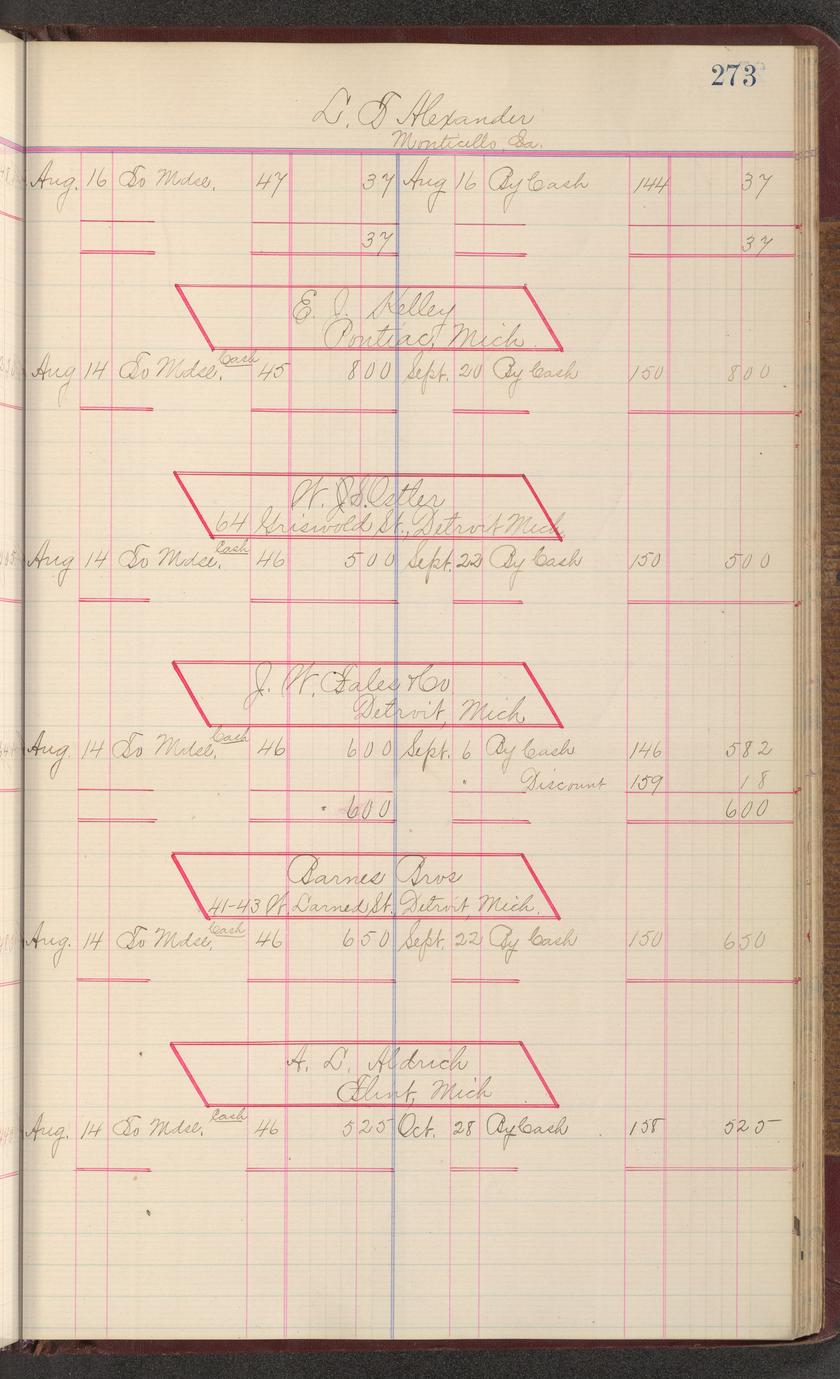 273
L. T. Alexander
Monticello, Ga.
Aug. 16 To Mdse. 47 37 Aug 16 By Cash 144 37
37 37
E. J. Kelley
Pontiac, Mich.
Aug 14 To Mdse. Cash 45 800 Sept. 20 By Cash 150 800
W. J. S. Ostler
64 Griswold St., Detroit Mich.
Aug 14 To Mdse. Cash 46 500 Sept. 22 By Cash 150 500
J. W. Fales & Co
Detroit, Mich
Aug. 14 To Mdse. Cash 46 600 Sept. 6 By Cash 146 582
" Discount 159 18
600 600
Barnes Bros
41-43 W. Larned St., Detroit, Mich.
Aug. 14 To Mdse. Cash 46 650 Sept. 22 By Cash 150 650
A. L. Aldrich
Flint, Mich
Aug. 14 To Mdse. Cash 46 525 Oct. 28 By Cash 158 525